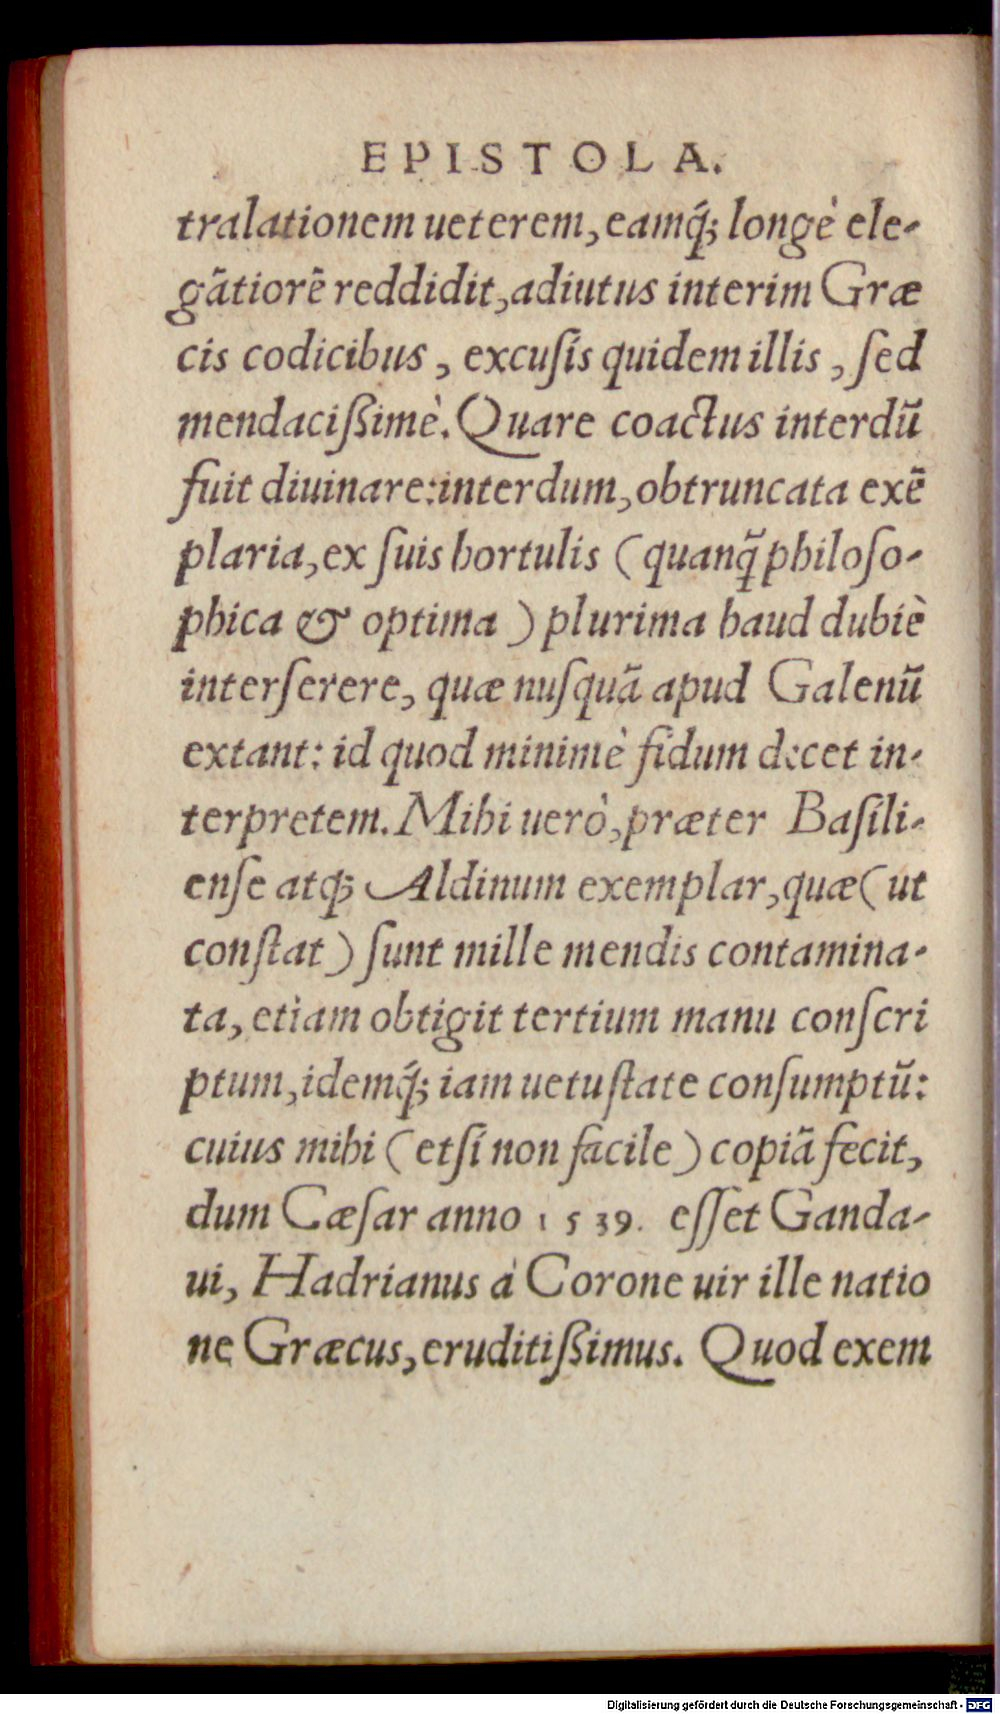 EPISTOLA.
tralationem ueterem, eamq́; longè ele-
gãtiorẽ reddidit, adiutus interim Græ
cis codicibus, excuſis quidem illis, ſed
mendacißimè. Quare coactus interdũ
fuit diuinare: interdum, obtruncata exẽ
plaria, ex ſuis hortulis (quanq̃ philoſo-
phica & optima) plurima haud dubiè
interſerere, quæ nuſquã apud Galenũ
extant: id quod minimè fidum decet in-
terpretem. Mihi uerò, præter Baſili-
enſe atq; Aldinum exemplar, quæ (ut
conſtat) ſunt mille mendis contamina-
ta, etiam obtigit tertium manu conſcri
ptum, idemq́; iam uetuſtate conſumptũ:
cuius mihi (etſi non facile) copiã fecit,
dum Cæſar anno 1539. eſſet Ganda-
ui, Hadrianus à Corone uir ille natio
ne Græcus, eruditißimus. Quod exem
Digitalisierung gefördert durch die Deutsche Forschungsgemeinschaft - DFG